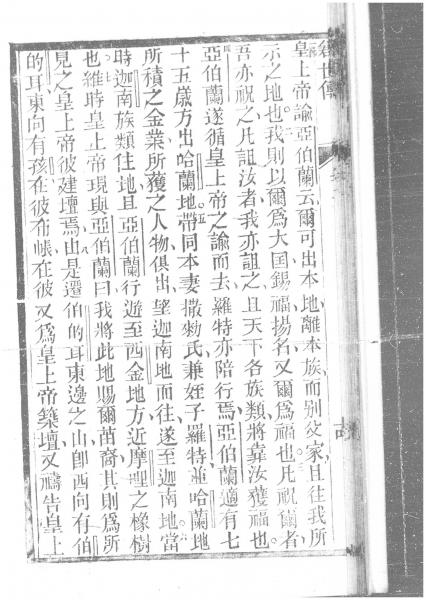 創世傳
皇上帝諭亞伯蘭云爾可出本地離本族而別父家且往我所
示之地也我則以爾爲大国錫福揚名又爾爲福也凡祝爾者
吾亦祝之凡詛汝者我亦詛之且天下各族類將靠汝獲福也
亞伯蘭遂循皇上帝之諭而去羅特亦陪行焉亞伯蘭適有七
十五歲方出哈蘭地帶同本妻撒勑氏兼姪子羅特並哈蘭地
所積之金業所獲之人物俱出望迦南地而往遂至迦南地當
時迦南族類住地且亞伯蘭行遊至西金地方近摩理之橡樹
也維時皇上帝現與亞伯蘭曰我將此地賜爾苗裔其則爲所
見之皇上帝彼建壇焉由是遷伯的耳東邊之山卽西向有伯
的耳東向有孩在彼布帳在彼又爲皇上帝築壇又禱告皇上